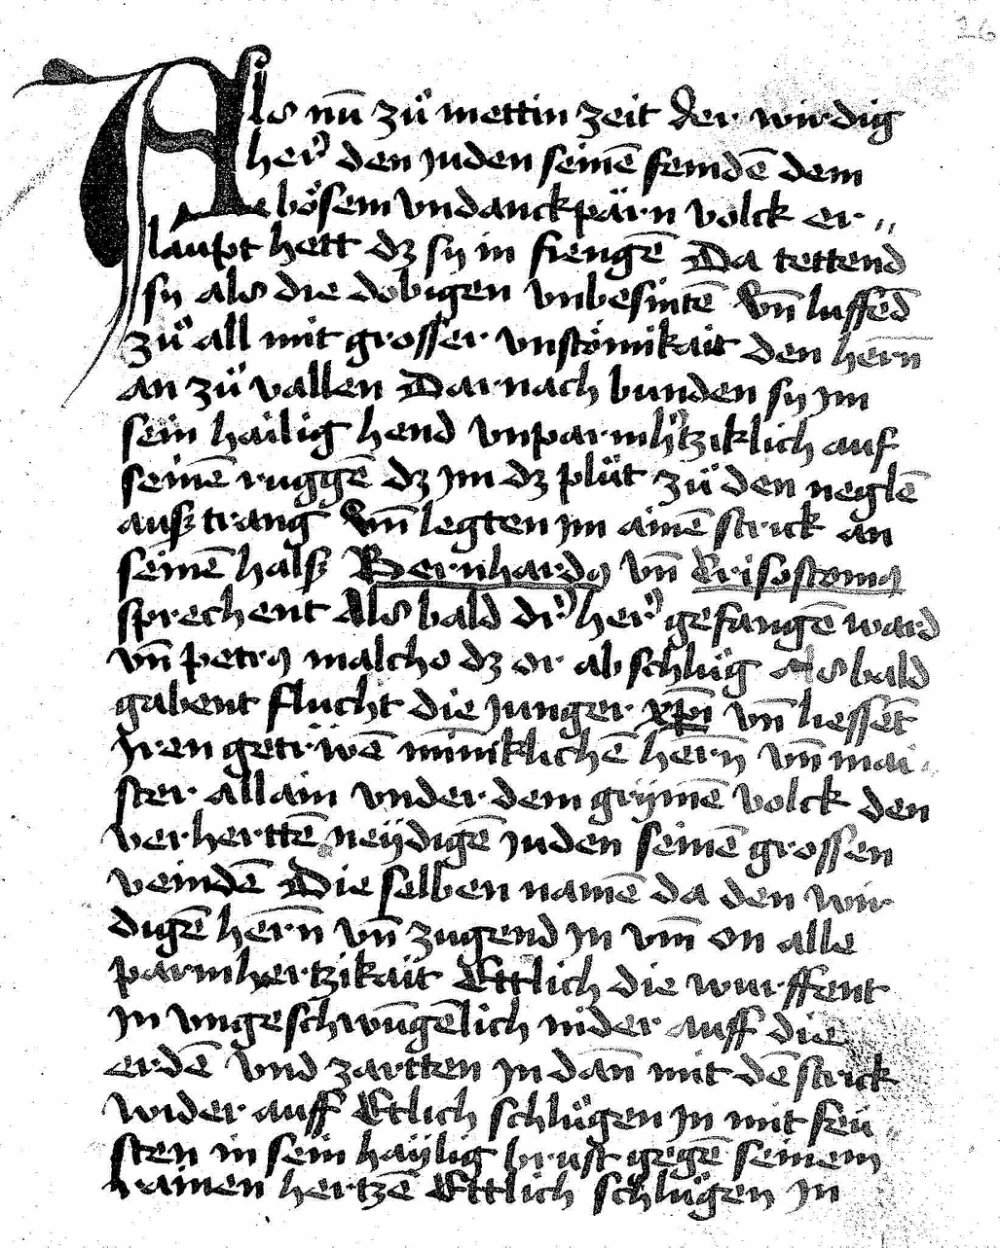 26
Als nū zů mettin zeit der wirdig
her den juden seinē feindē dem
bösem vndanckpärn volck er„
laupt hett dz sy in fiengē Da tettend
sy als die dobigen vnbesintē vn̄ luffēd
zů all mit grosser vnstömikait den hern̄
an zů vallen Darnach bunden sy im
sein hailig hend vnparmhtziklich auf
seinē ruggē dz jm dz plůt zů den neglē
ausz trang vn̄ legten jm ainē strick an
seinē halsz Bernhardꝯ vn̄ Crisostomꝯ
sprechent Als bald dr her gefangē ward
vn̄ petrꝯ malcho dz or ab schlůg Als bald
gabent flucht die junger xp̄i vn̄ liessēt
jren getrüwē miniklichē hern̄ vn̄ mai
ster allain vnder dem grymē volck den
verherttē neydigē juden seinē grossen
veindē Die selben namē da den wir
digē hern̄ vn̄ zugend jn vm̄ on alle
parmhertzikait Ettlich die wurffent
jn vngeschwūgēlich nider auff die
erdē vnd zartten jn dan̄ mit dē strick
wider auff Etlich schlůgen jn mit feü
sten in sein haylig brust gegē seinem
rainen hertzē Ettlich schlůgen jn